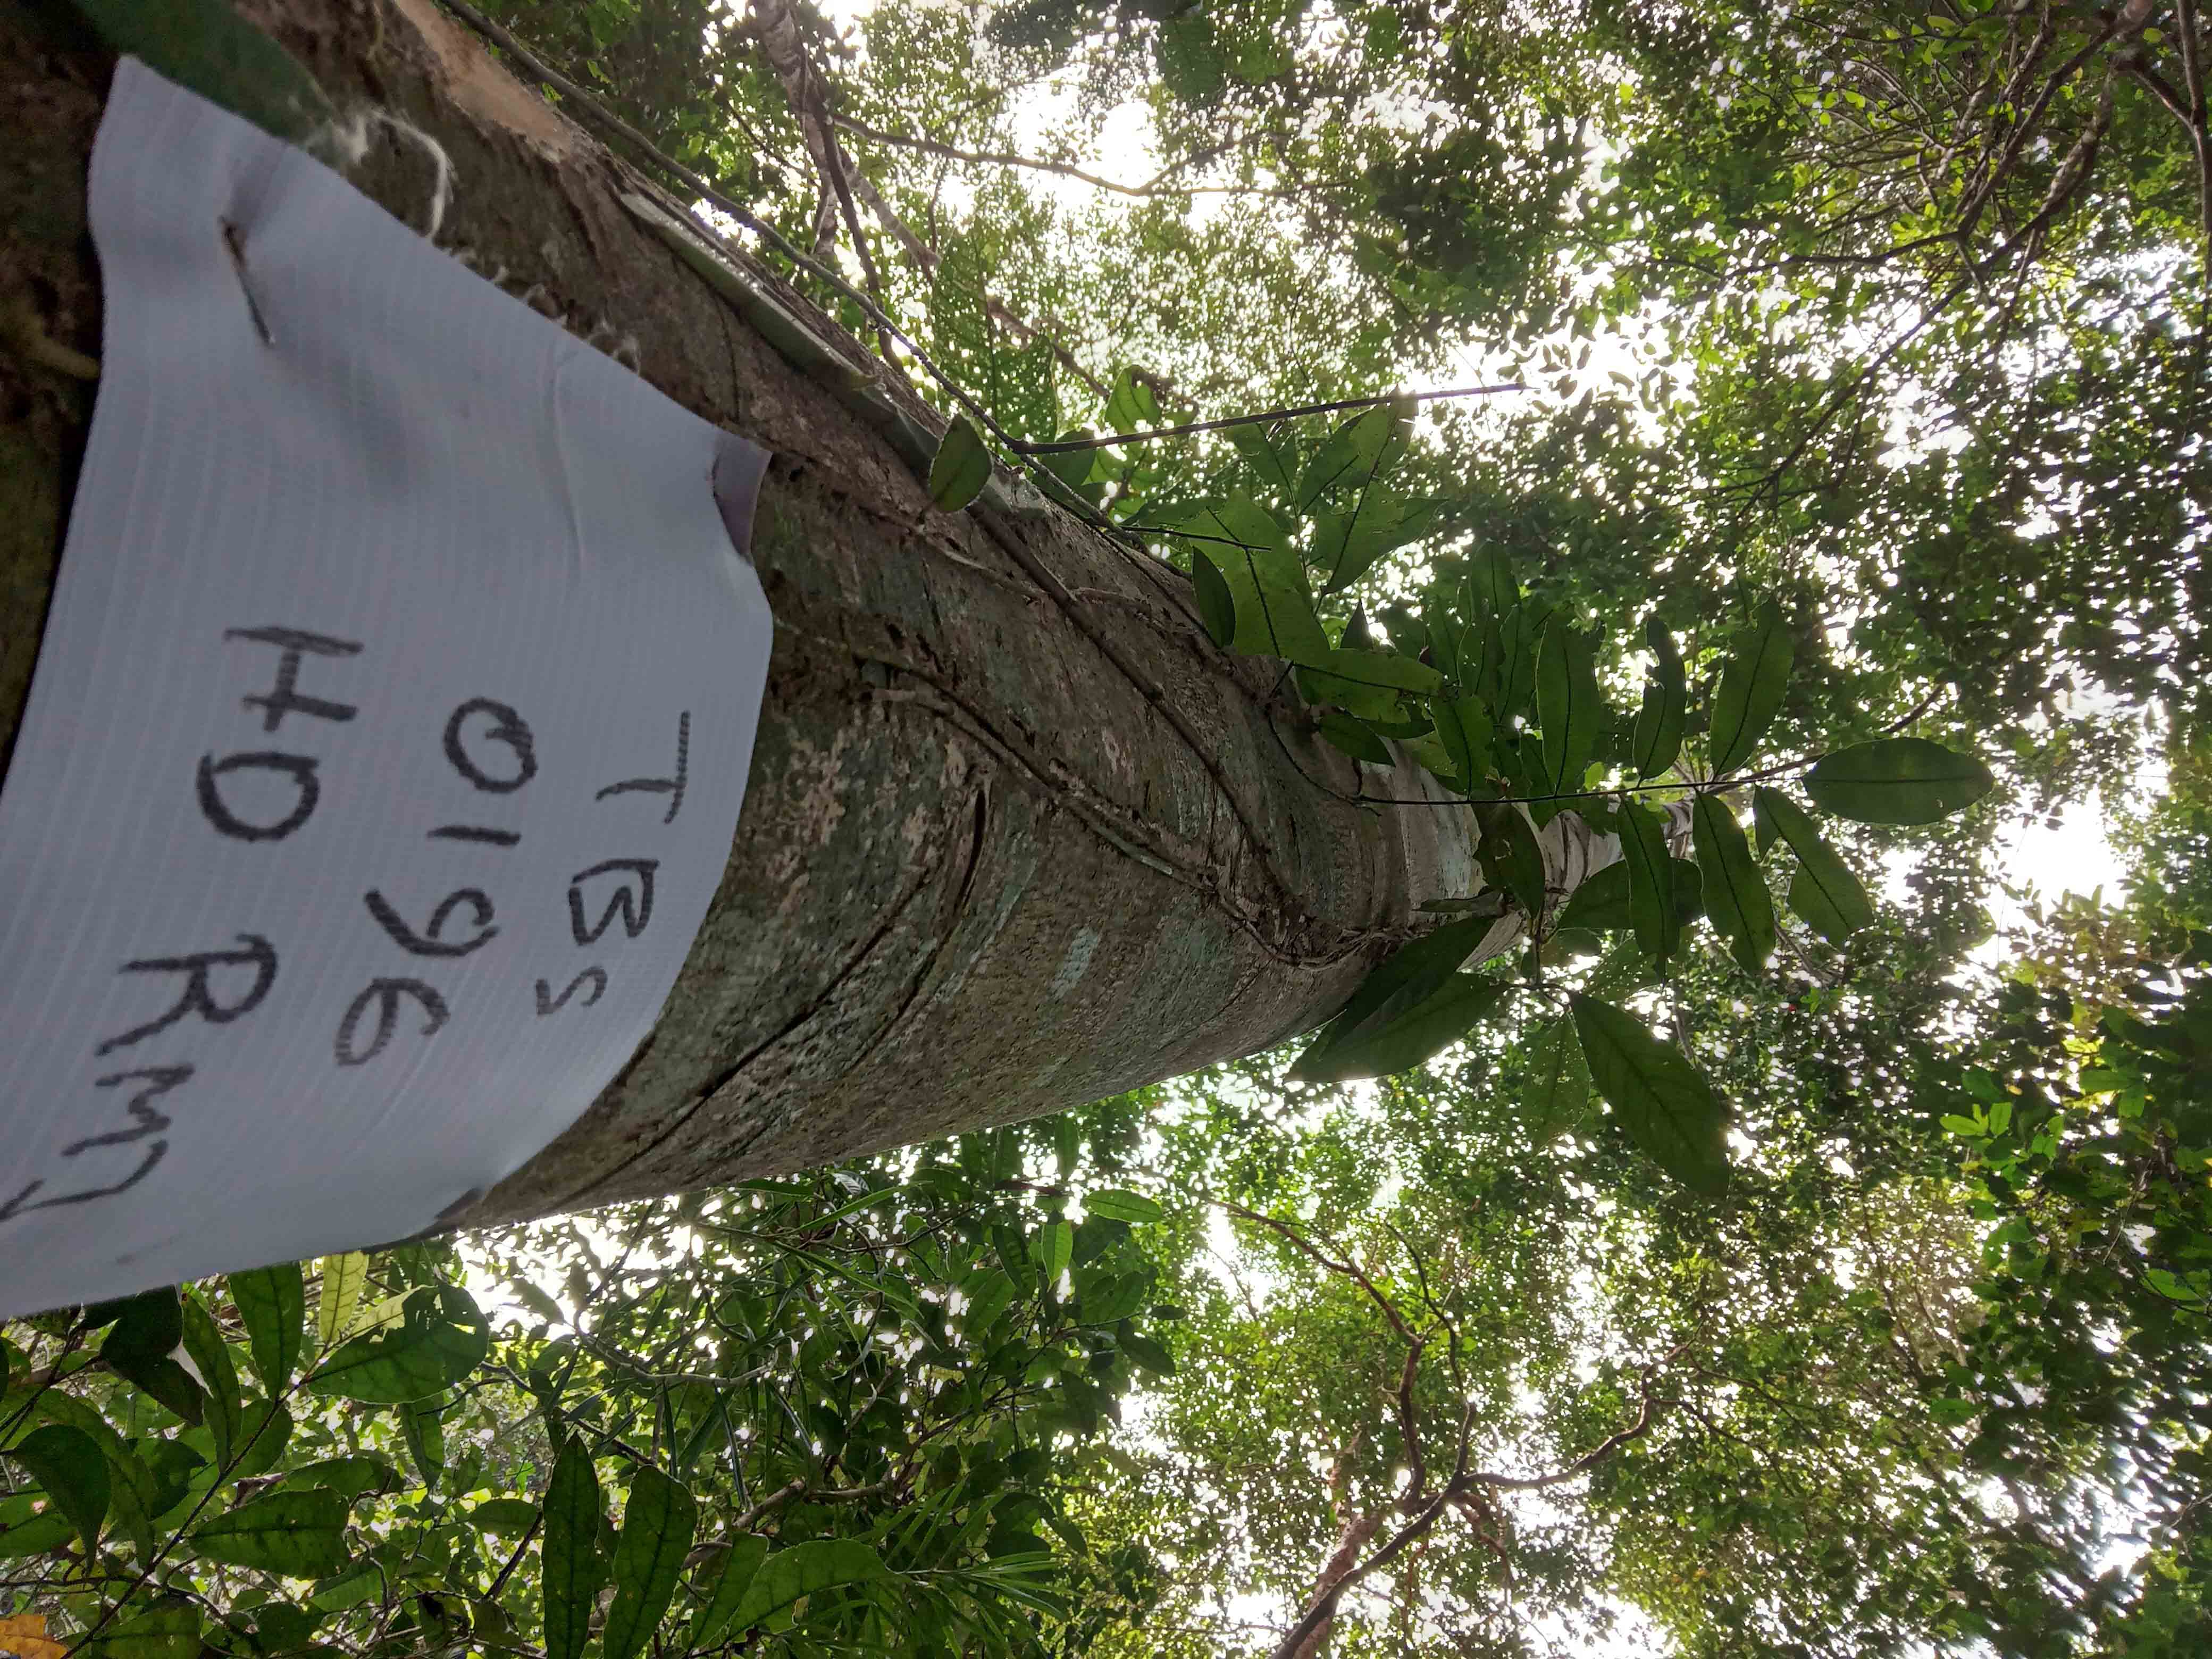 TBS
0196
HD RM